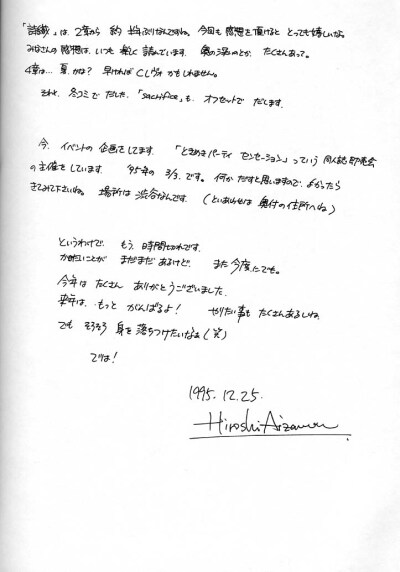 」は、2度から 約 半年ぶりなんですね。今回も 感想を頂けると とっても嬉しいな。
みなさんの 感想は、いつも 楽しく 読んでいます。 奥の深いのとか、たくさんあって。
4度は… 夏、かな? 早ければ CレヴォかもしれませんA。
それと、冬コミで だした、「Sacrifice」も、オフセットで だします。
今、イベントの 企画を してます。 「ときめきパーティ センセーション」っていう 同人誌即売会
の主催をしています。 '95年の 3/3.です。何かだすと思いますので、よかったら
きてみて下さいね。 場所は 渋谷なんです。(といあわせは 奥付の住所へね)
というわけで、もう、時間切れです。
かきたいことが まだまだ あるけど、 また 今度にでも。
今年は たくさん ありがとうございました。
来年は、もっと がんばるよ! やりたい事も たくさんあるしね。
でも そろそろ 身を落ちつけたいなぁ(笑)
では!
1995.12.25.
Hiroshi Aizawa